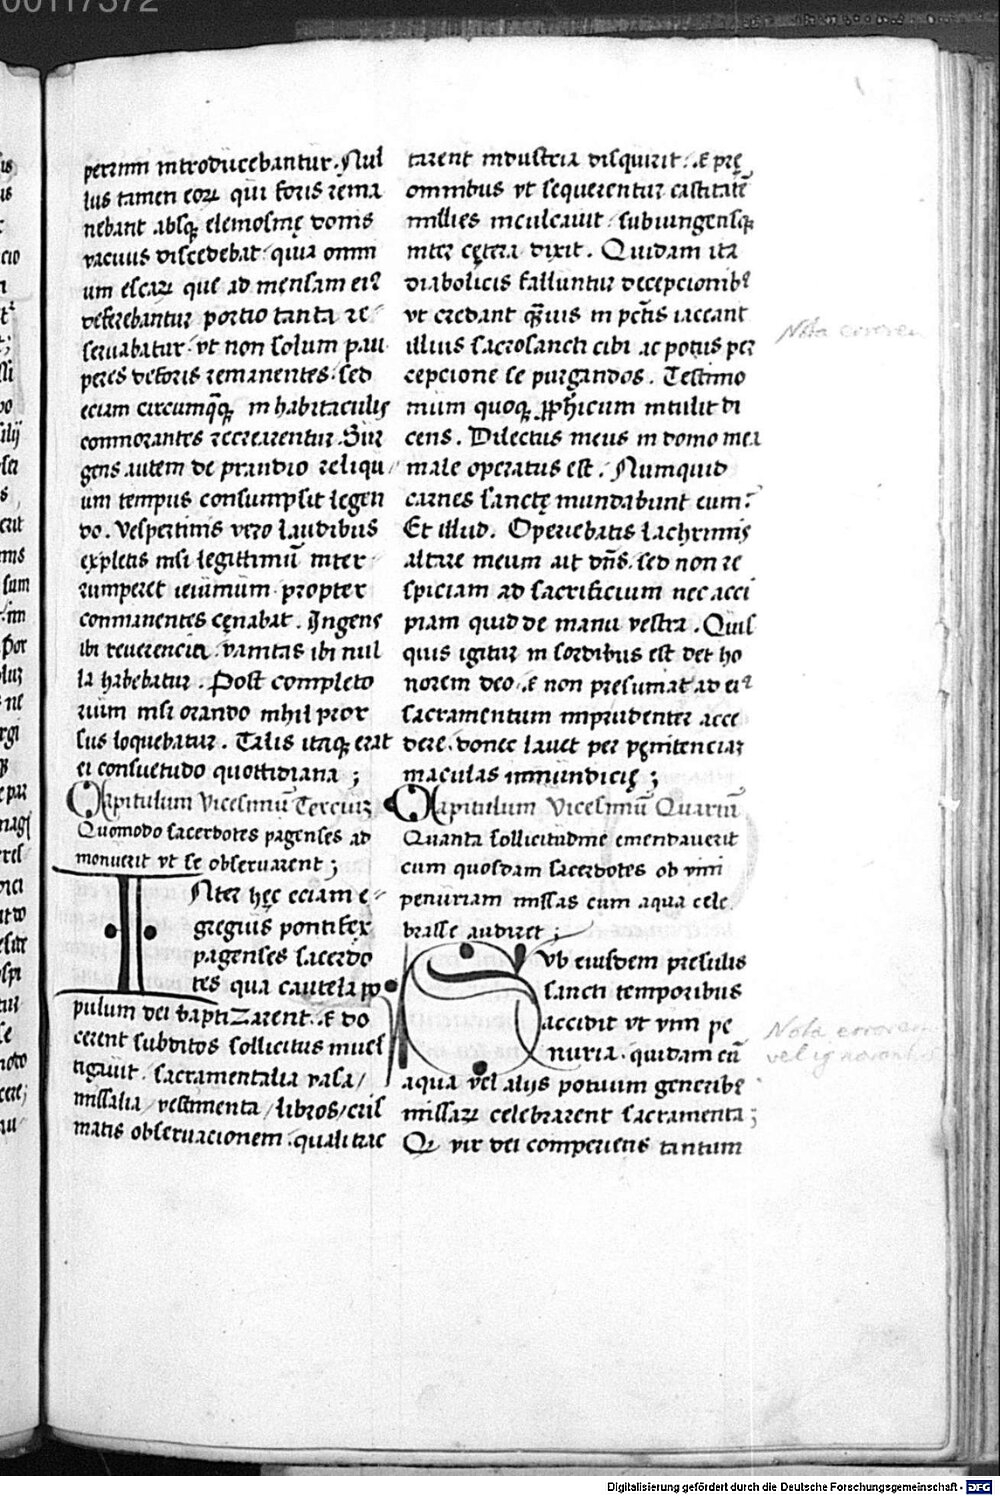 00117372
petrinn introducebantur. Nul
lus tamen eoꝝ qui foris rema
nebant absqꝫ elemosinę donis
vacuus discedebat. quia omni
um escaꝝ que ad mensam eiꝰ
deferebantur portio tanta re-
seruabatur. vt non solum pau
peres deforis remanentes. sed
eciam circumq̃qꝫ in habitaculis
commorantes recrearentur. Sur
gens autem de prandio reliqu
um tempus consumpsit legen
do. Vespertinis vero laudibus
expletis nisi legittimũ inter-
rumperet ieiunium. propter
conmanentes cęnabat. Ingens
ibi reuerencia. vanitas ibi nul
la habebatur. Post completo
rium nisi orando nihil pror
sus loquebatur. Talis itaqꝫ erat
ei consuetudo quottidiana ;
Capitulum Vicesimũ Terciuꝫ
Quomodo sacerdotes pagenses ad
monuerit vt se obseruarent ;
INter hęc eciam e-
gregius pontifex
pagenses sacerdo
tes qua cautela po
pulum dei baptizarent. & do
cerent subditos sollicitus inues
tigauit. sacramentalia vasa /
missalia / vestimenta / libros / cris
matis obseruacionem. qualitae
tarent industria disquirit. & prę
omnibus vt sequerentur castitatẽ
millies inculcauit. subiungensqꝫ
inter cętera dixit. Quidam ita
diabolicis falluntur decepcionibꝰ
vt credant q̃uis in pctĩs iaceant
illius sacrosancti cibi ac potus per
cepcione se purgandos. Testimo
nium quoqꝫ ꝓpheticum intulit di
cens. Dilectus meus in domo mea
male operatus est. Numquid
carnes sanctę mundabunt eum?
Et illud. Operiebatis lachrimis
altare meum ait dñs. sed non re
spiciam ad sacrificium nec acci
piam quid de manu vestra. Quis
quis igitur in sordibus est det ho
norem deo. & non presumat ad eiꝰ
sacramentum imprudenter acce
dere. donec lauet per pęnitenciaꝫ
maculas inmundicię ;
Capitulum Vicesimũ Quartũ
Quanta sollicitudine emendauerit
cum quosdam sacerdotes ob vini
penuriam missas cum aqua cele
brasse audiret ;
SVb eiusdem presulis
sancti temporibus
accidit vt vini pe
nuria. quidam cũ
aqua vel alijs potuum generibꝰ
missaꝝ celebrarent sacramenta ;
Qꝫ vir dei comperiens tantum
Nota errorem
Nota errorem
vel
Digitalisierung gefördert durch die Deutsche Forschungsgemeinschaft - DFG